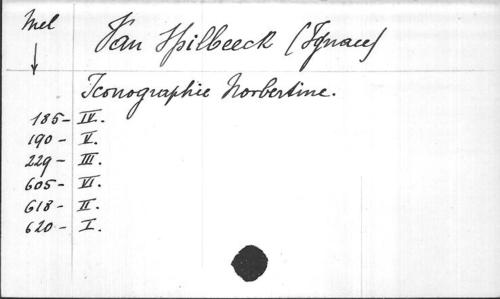 Mel
Van Spilbeeck (Ignace)
Iconographie Norbertine.
185 - IV.
190 - V.
229 - III.
605 - VI.
618 - II.
620 - I.